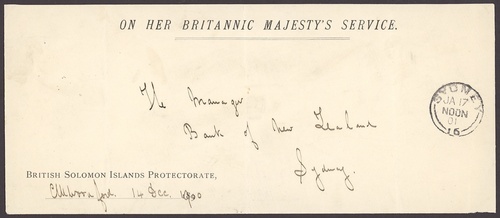 ON HER BRITANNIC MAJESTY'S SERVICE.
The Manager
Bank of New Zealand
Sydney.
SYDNEY
JA 17
NOON
01
16
BRITISH SOLOMON ISLANDS PROTECTORATE,
14 Dec. 1900